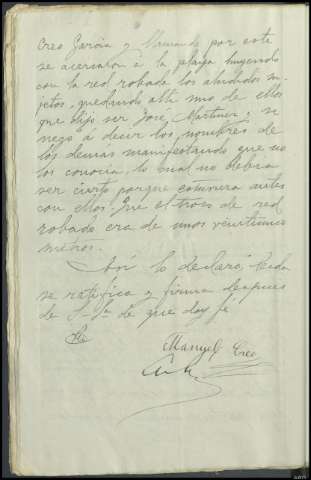 Creo Garcia y Marcande por este
se acercaban á la playa huyendo
con la red robada los aludidos su-
jetos, quedando alli uno de ellos
que dijo ser Jose Martinez, se
nego á decir los nombres de
los demás manifestando que no
los conocia, lo cual no debia
ser cierto porque estuviera antes
con ellos. Que el trozo de red
robado era de unos veintiunco
metros.
Así lo declaró, leida
se ratifica y firma despues
de S. Sª de que doy fé
Manuel Creo